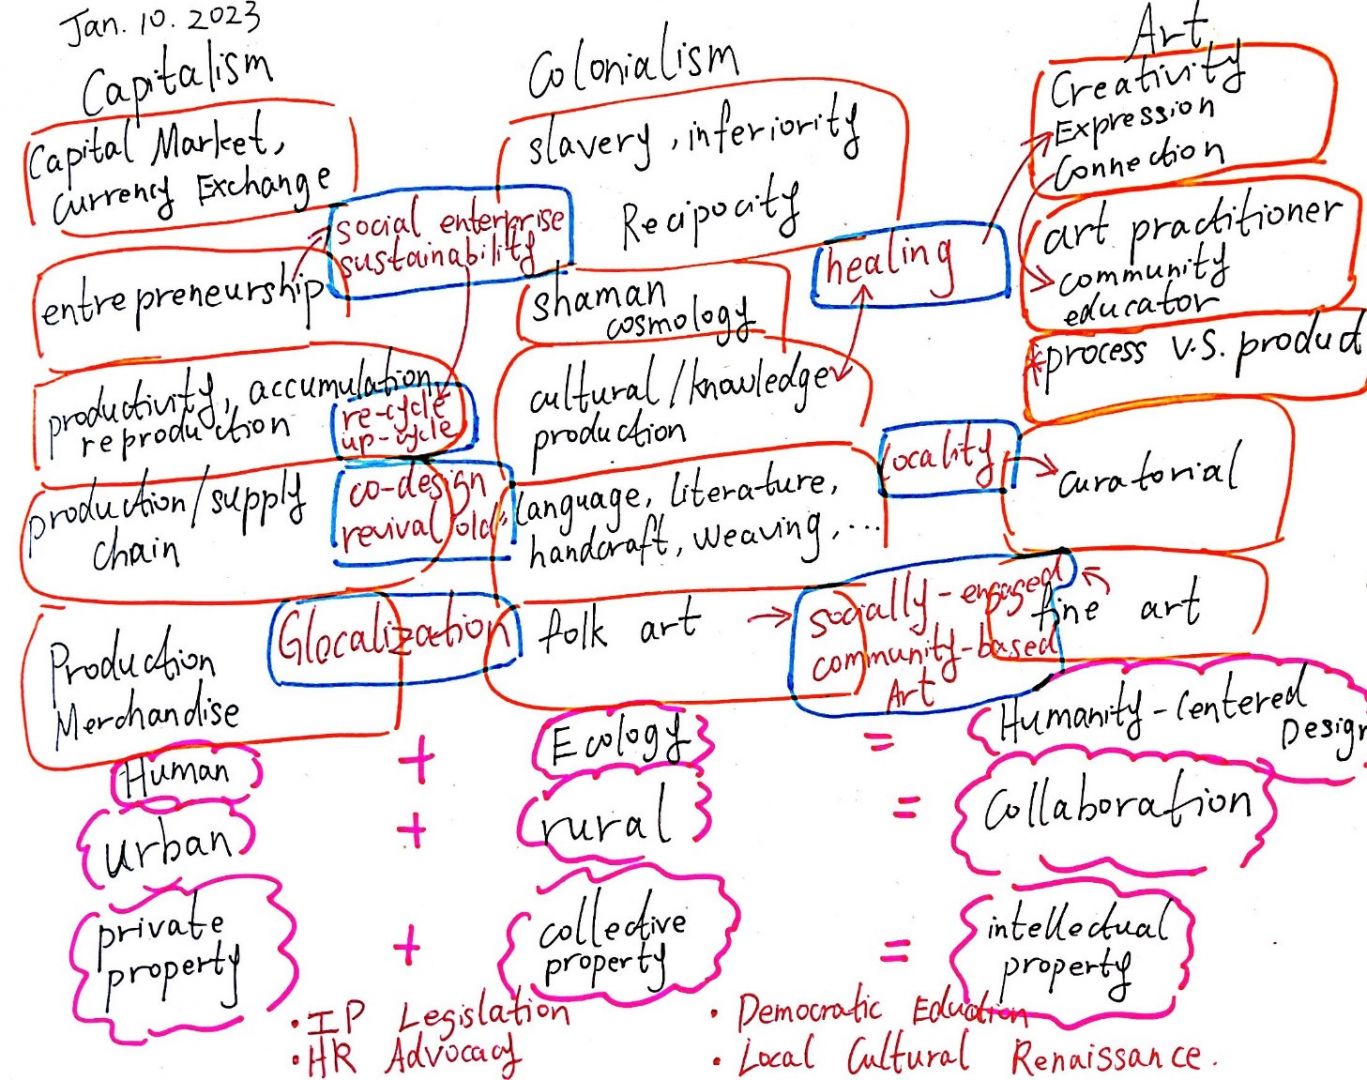 Jan. 10. 2023
Capitalism
Capital Market,
Currency Exchange
entrepreneurship
social enterprise
sustainability
productivity, accumulation,
reproduction
re-cycle
up-cycle
production/supply
chain
co-design
revival old
Glocalization
Production
Merchandise
Colonialism
slavery, inferiority
Recipocity
shaman
cosmology
healing
cultural/knowledge
production
language, literature,
handcraft, weaving, ...
locality
folk art
socially-engaged
community-based
Art
Art
Creativity
Expression
Connection
art practitioner
community
educator
*process v.s. product
curatorial
fine art
Human + Ecology = Humanity-Centered
Design
urban + rural = Collaboration
private
property
+
collective
property
=
intellectual
property
• IP Legislation
• HR Advocacy
• Democratic Eduction
• Local Cultural Renaissance.